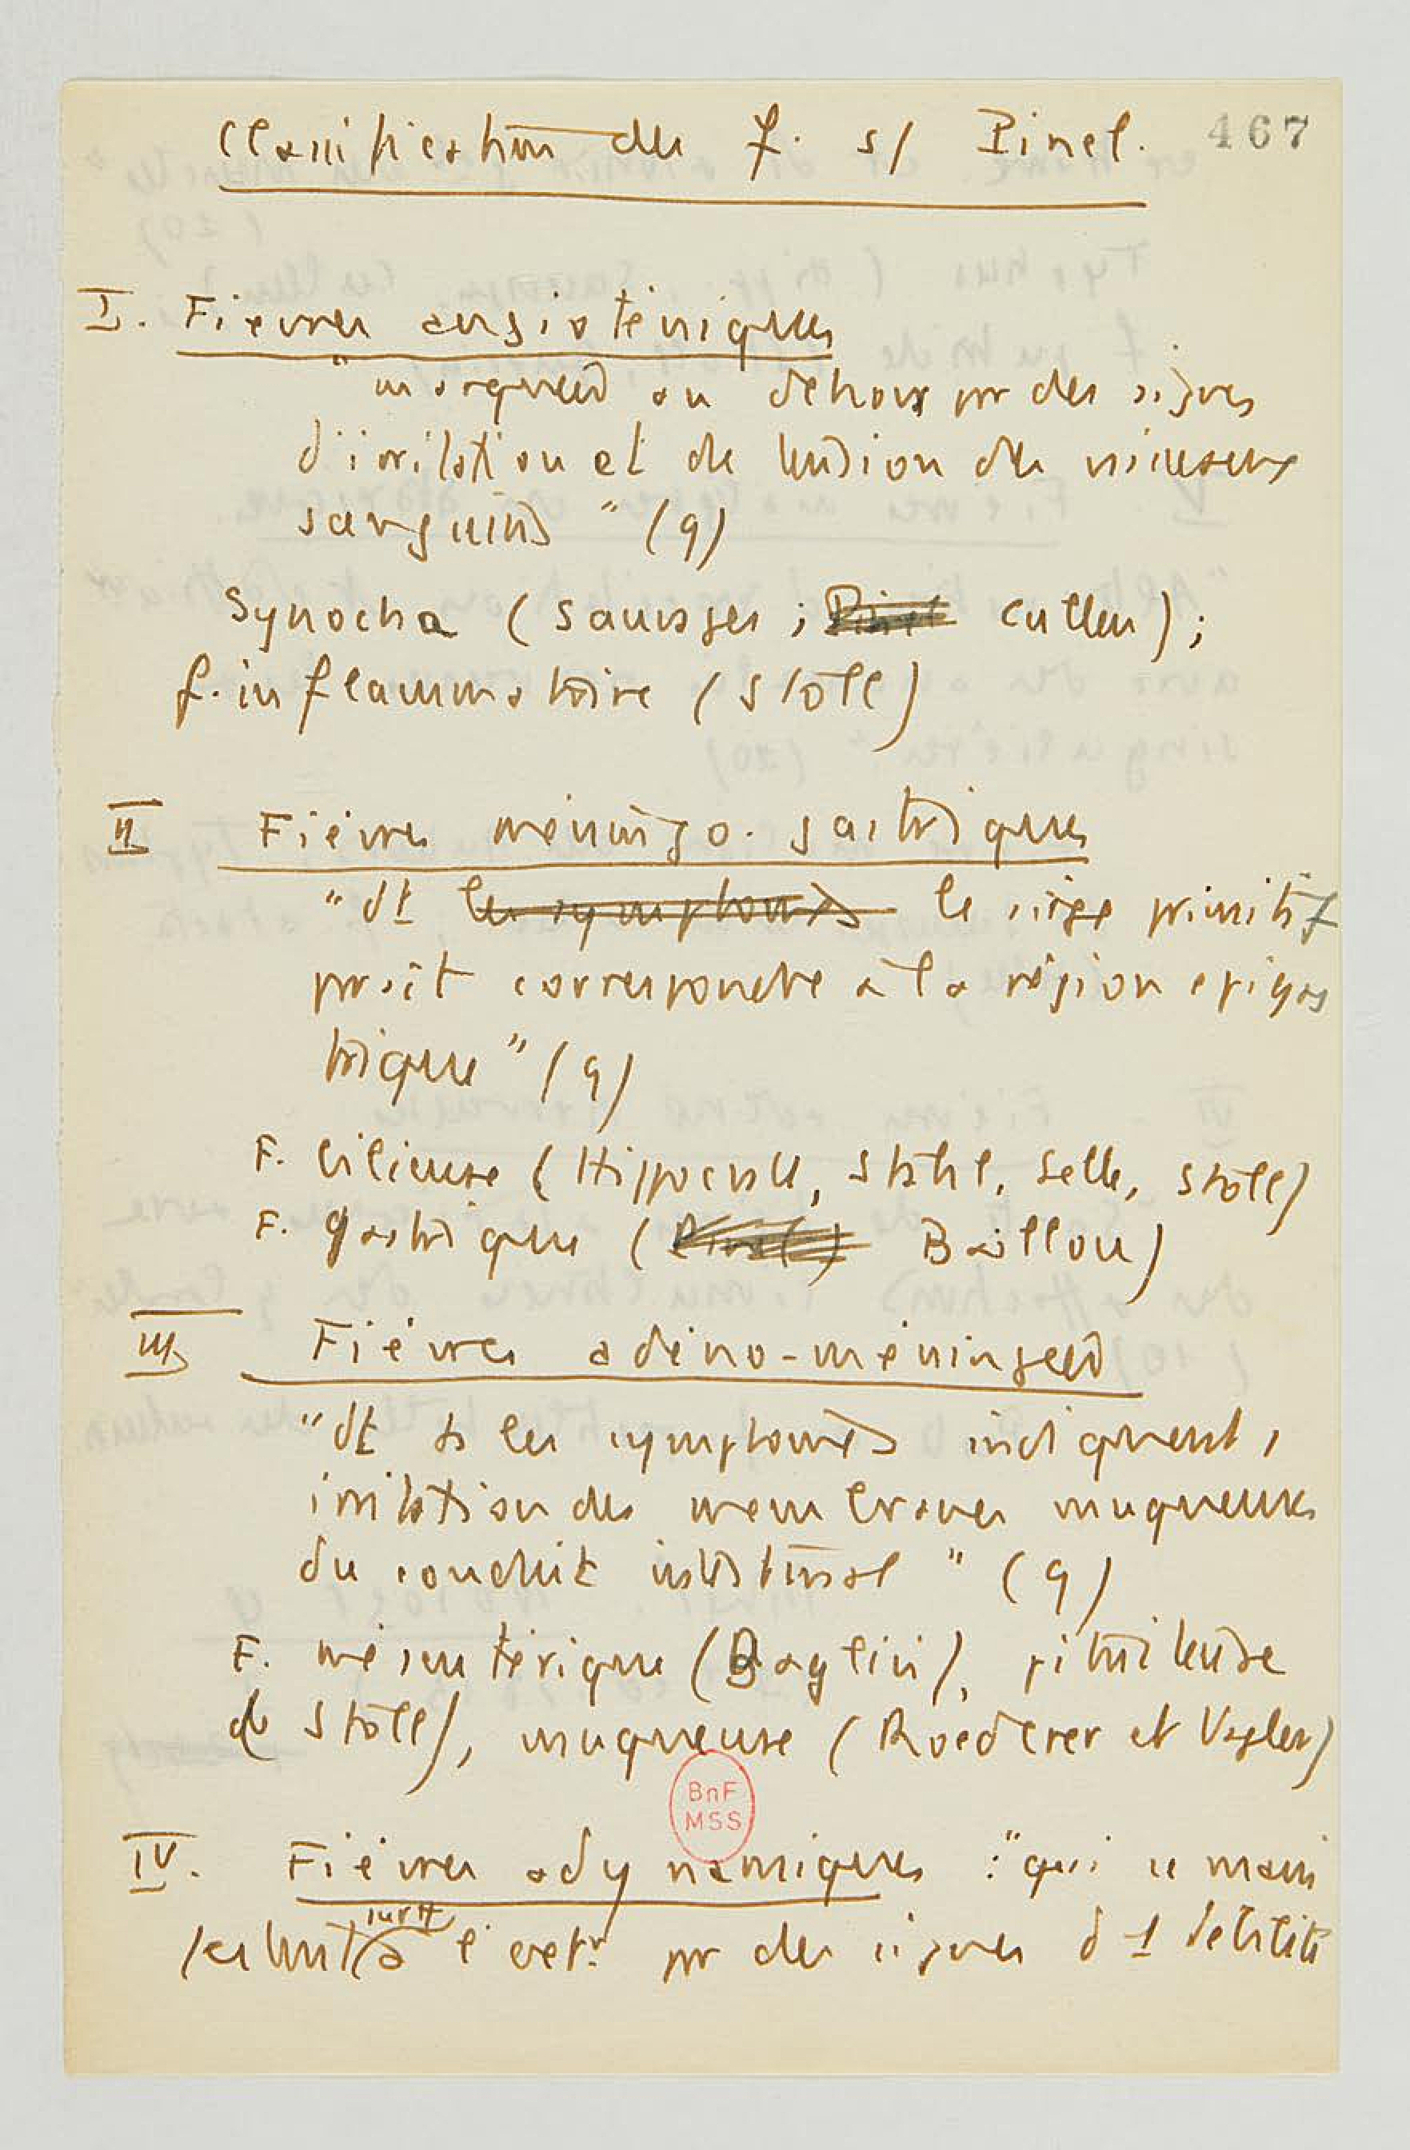 Classification des f. s/ Pinel. 467
I. Fièvres angioténiques
"marquées au dehors pr des signes
d'irritation et de tension des vaisseaux
sanguins" (9)
Synocha (Sauvages ; Pinel Cullen) ;
f. inflammatoire (Stoll)
II Fièvres méningo-gastriques
"dt les symptomes le siège primitif
prait correspondre à la région épigas
trique" (9)
F. bilieuse (Hippocrate, Stahl, Selle, Stoll)
F. gastrique (Pinel) Baillou)
III Fièvres adéno-méningées
"dt ts les symptomes indiquent 1
irritation des membranes muqueuses
du conduit intestinal" (9)
F. mésentérique (Baglivi), pituiteuse
de Stoll), muqueuse (Roederer et Vagler)
BnF
MSS
IV. Fièvres adynamiques : "qui se mani
festent surtt à l'extr pr des signes d'1 débilité